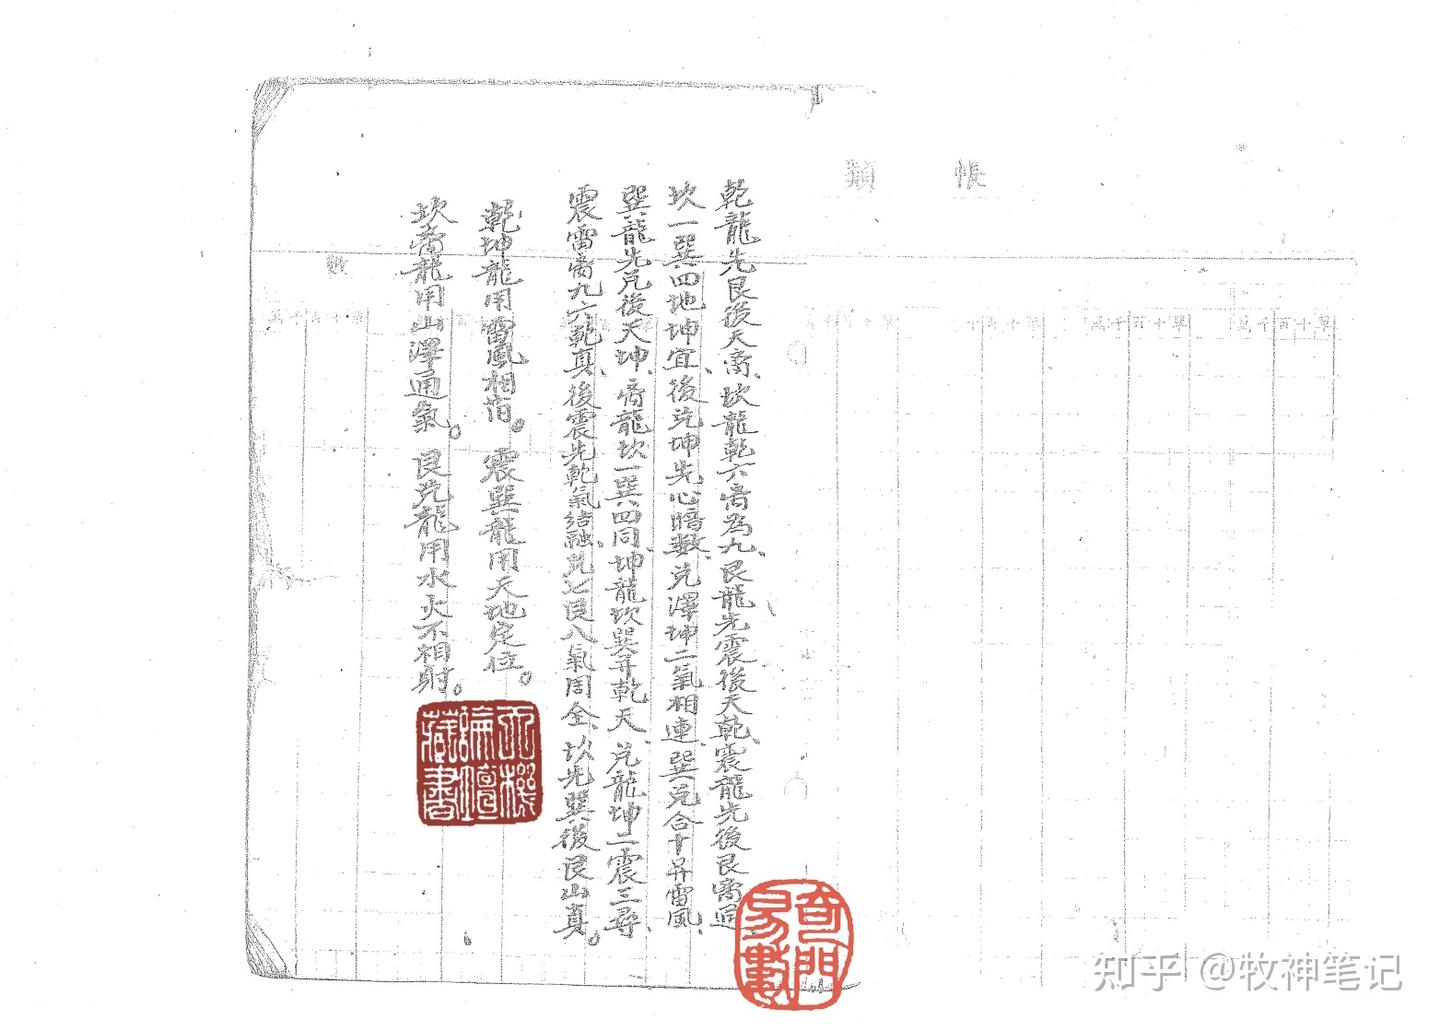 帳 類
乾龍先艮後天离、坎龍乾六离為九、艮龍先震後天乾、震龍先後艮离逈、
坎一巽四地坤宜、後兊坤先心暗数、兊澤坤二氣相連、巽兊合十并雷風、
巽龍先兊後天坤、离龍坎一巽四同、坤龍坎巽并乾天、兊龍坤二震三尋、
震雷离九六乾真、後震先乾氣結融、兊七艮八氣周全、坎先巽後艮山真。
乾坤龍用雷風相薄。震巽龍用天地定位。
坎离龍用山澤通氣。艮兊龍用水火不相射。
數
萬千百十單
萬千百十單
天機論壇藏書
奇門易數
知乎 @牧神笔记